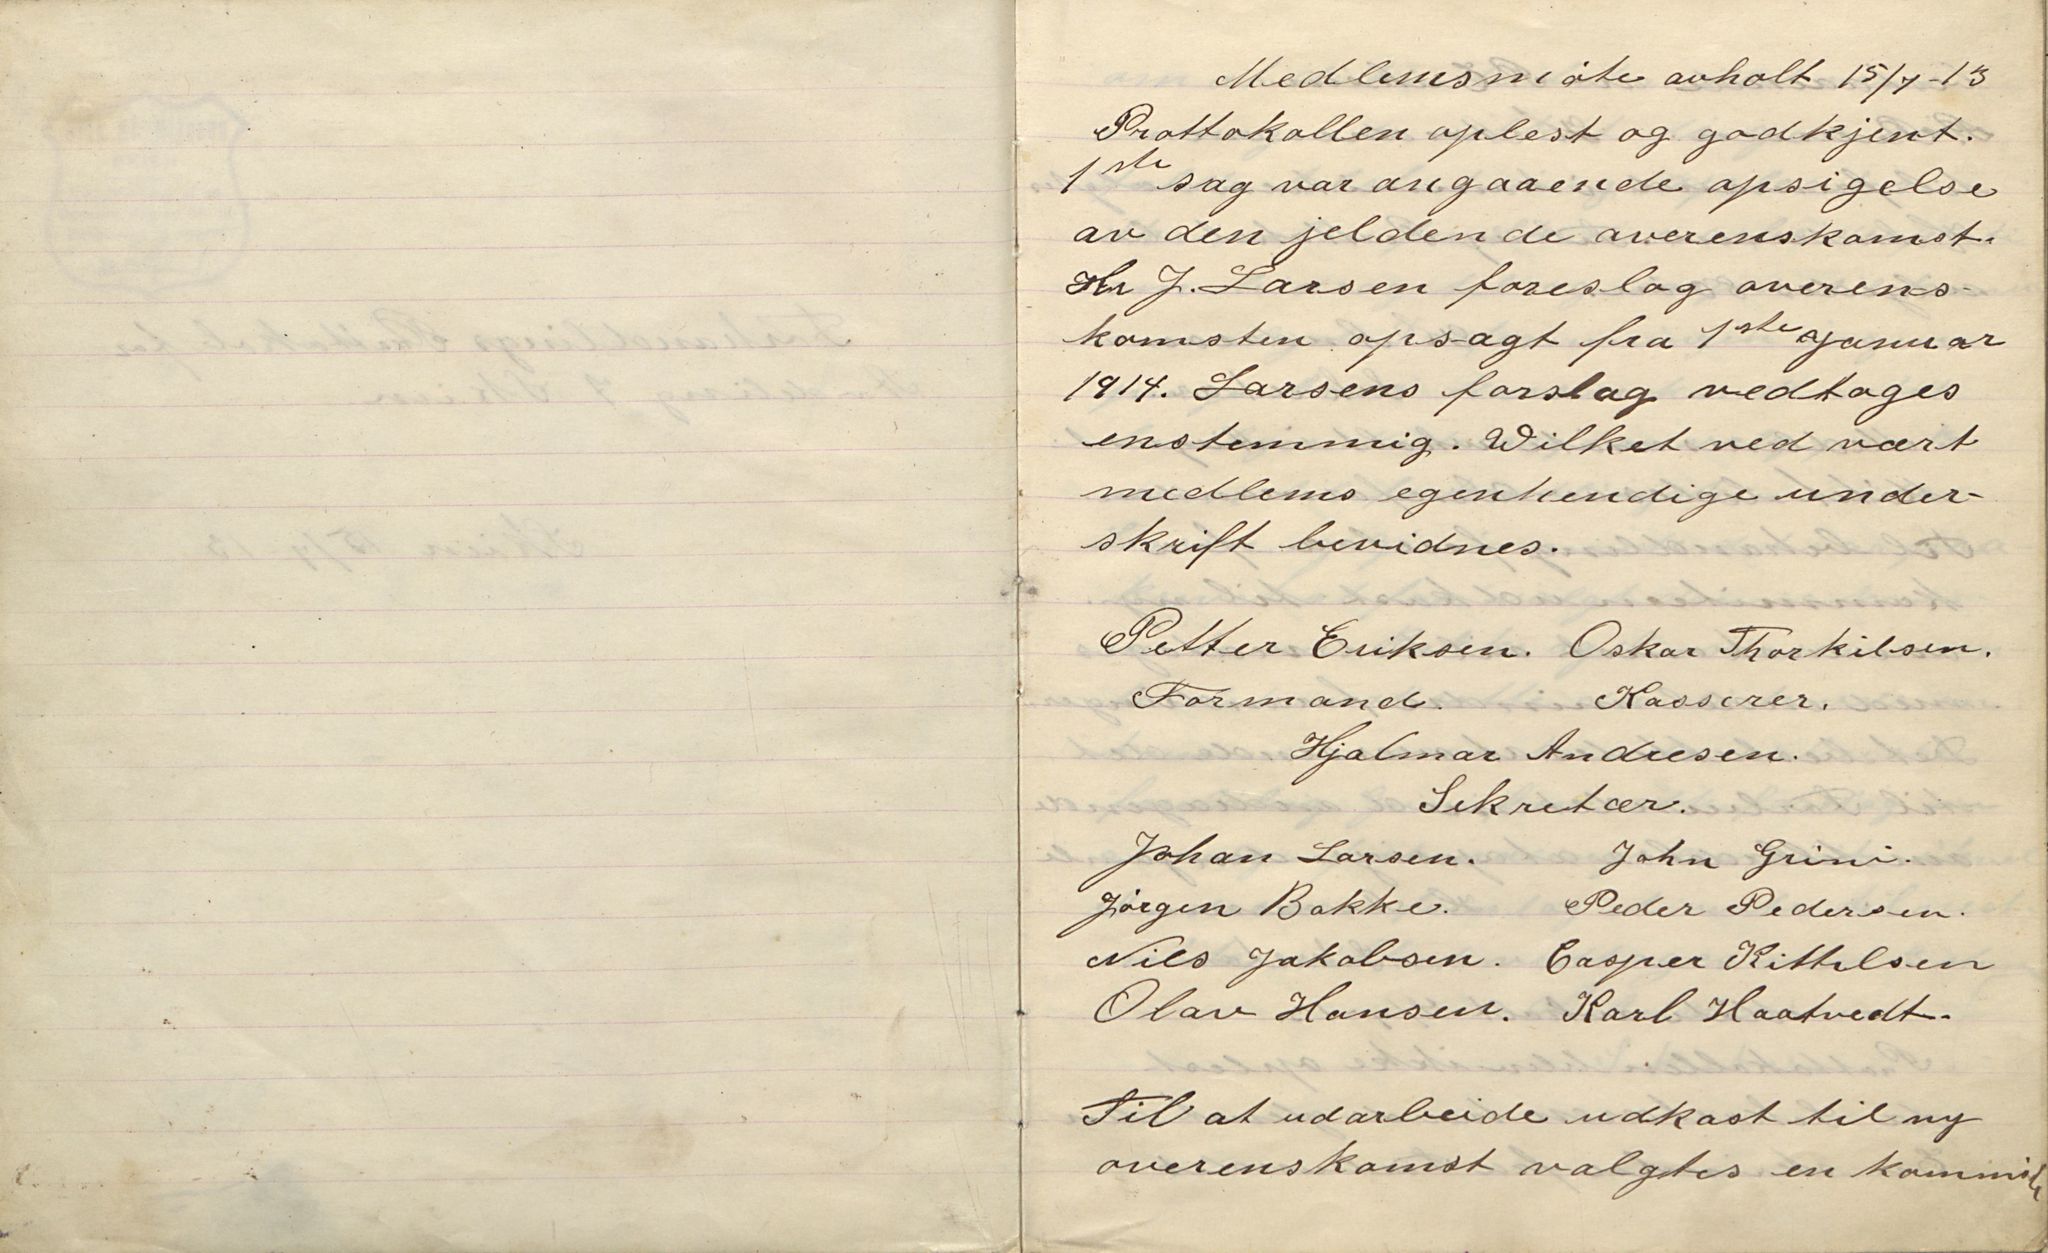 Medlemsmöte avholt 15/7-13
Prottokollen oplest og godkjent.
1ste sag var angaaende opsigelse
av den jeldende overenskomst.
Hr J. Larsen foreslog overens-
komsten opsagt fra 1ste Januar
1914. Larsens forslag vedtoges
enstemmig. Wilket ved vært
medlems egenhendige under-
skrift bevidnes.
Petter Eriksen. Oskar Thorkilsen.
Formand. Kasserer.
Hjalmar Andresen.
Sekretær.
Johan Larsen. John Grini.
Jörgen Bakke. Peder Pedersen.
Nils Jakobsen. Casper Kittelsen
Olav Hansen. Karl Haatvedt.
Til at udarbeide udkast til ny
overenskomst valgtes en